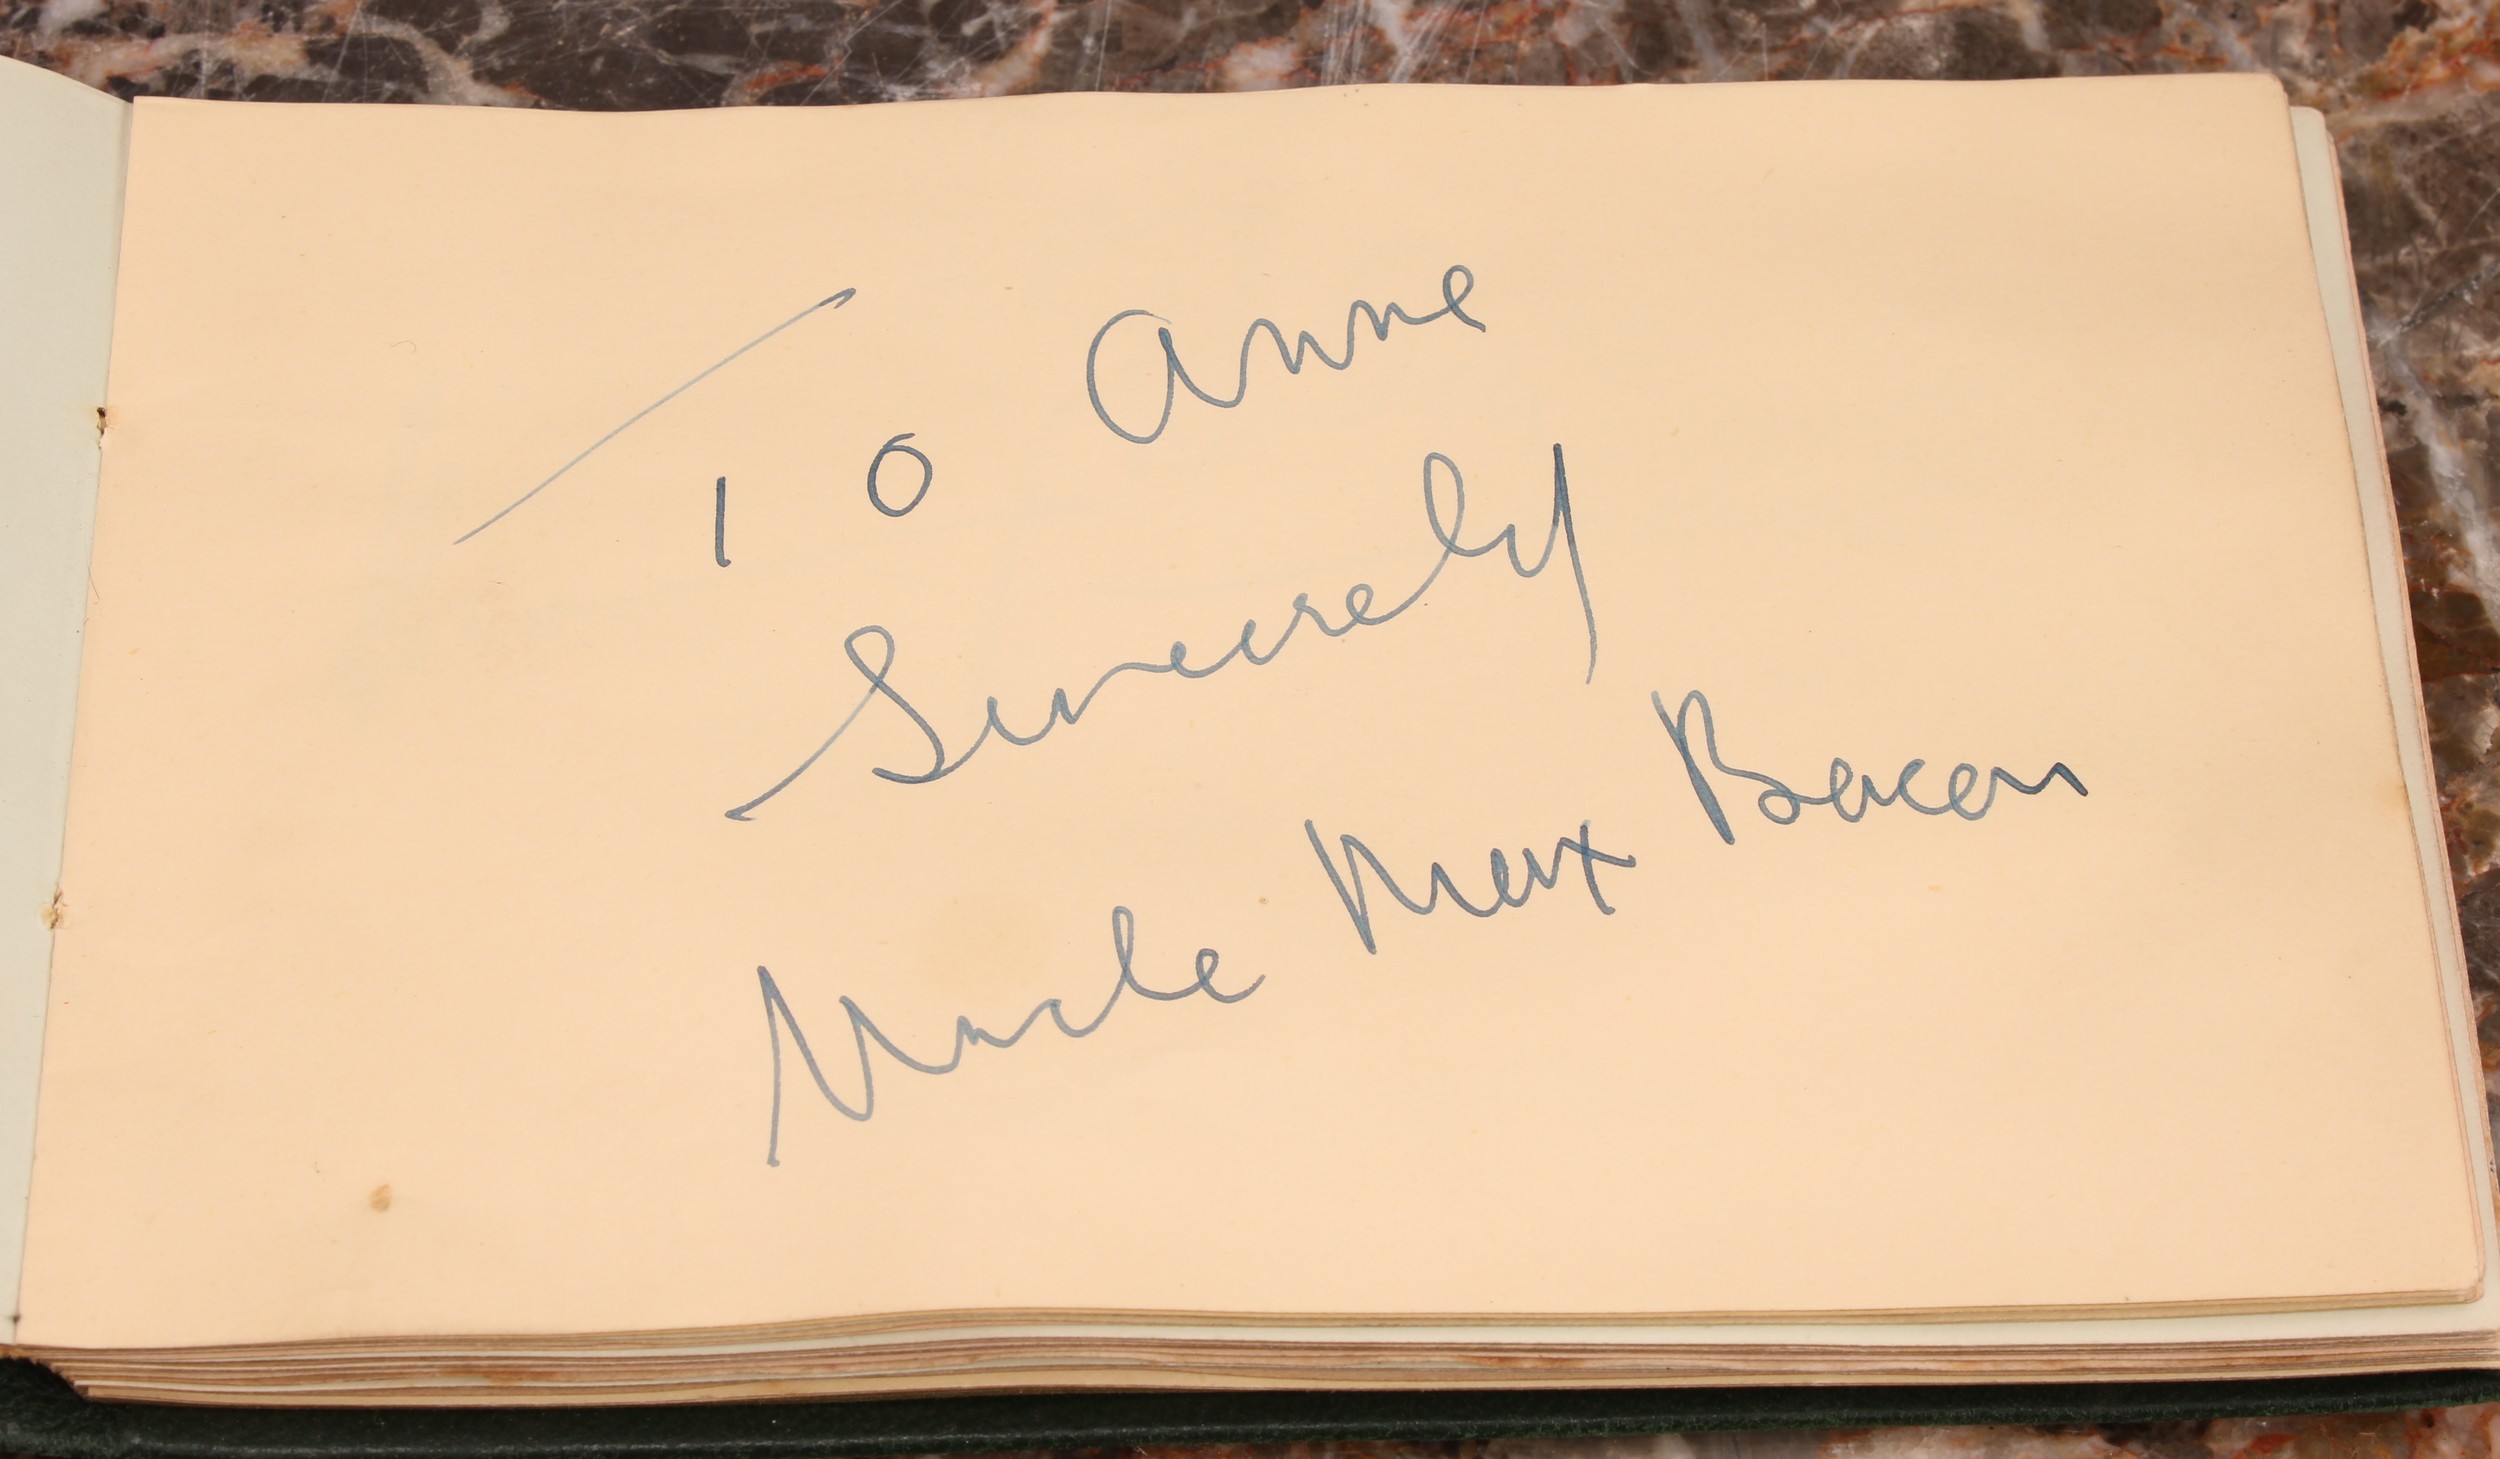 To Anne
Sincerely
Uncle Max Bacon